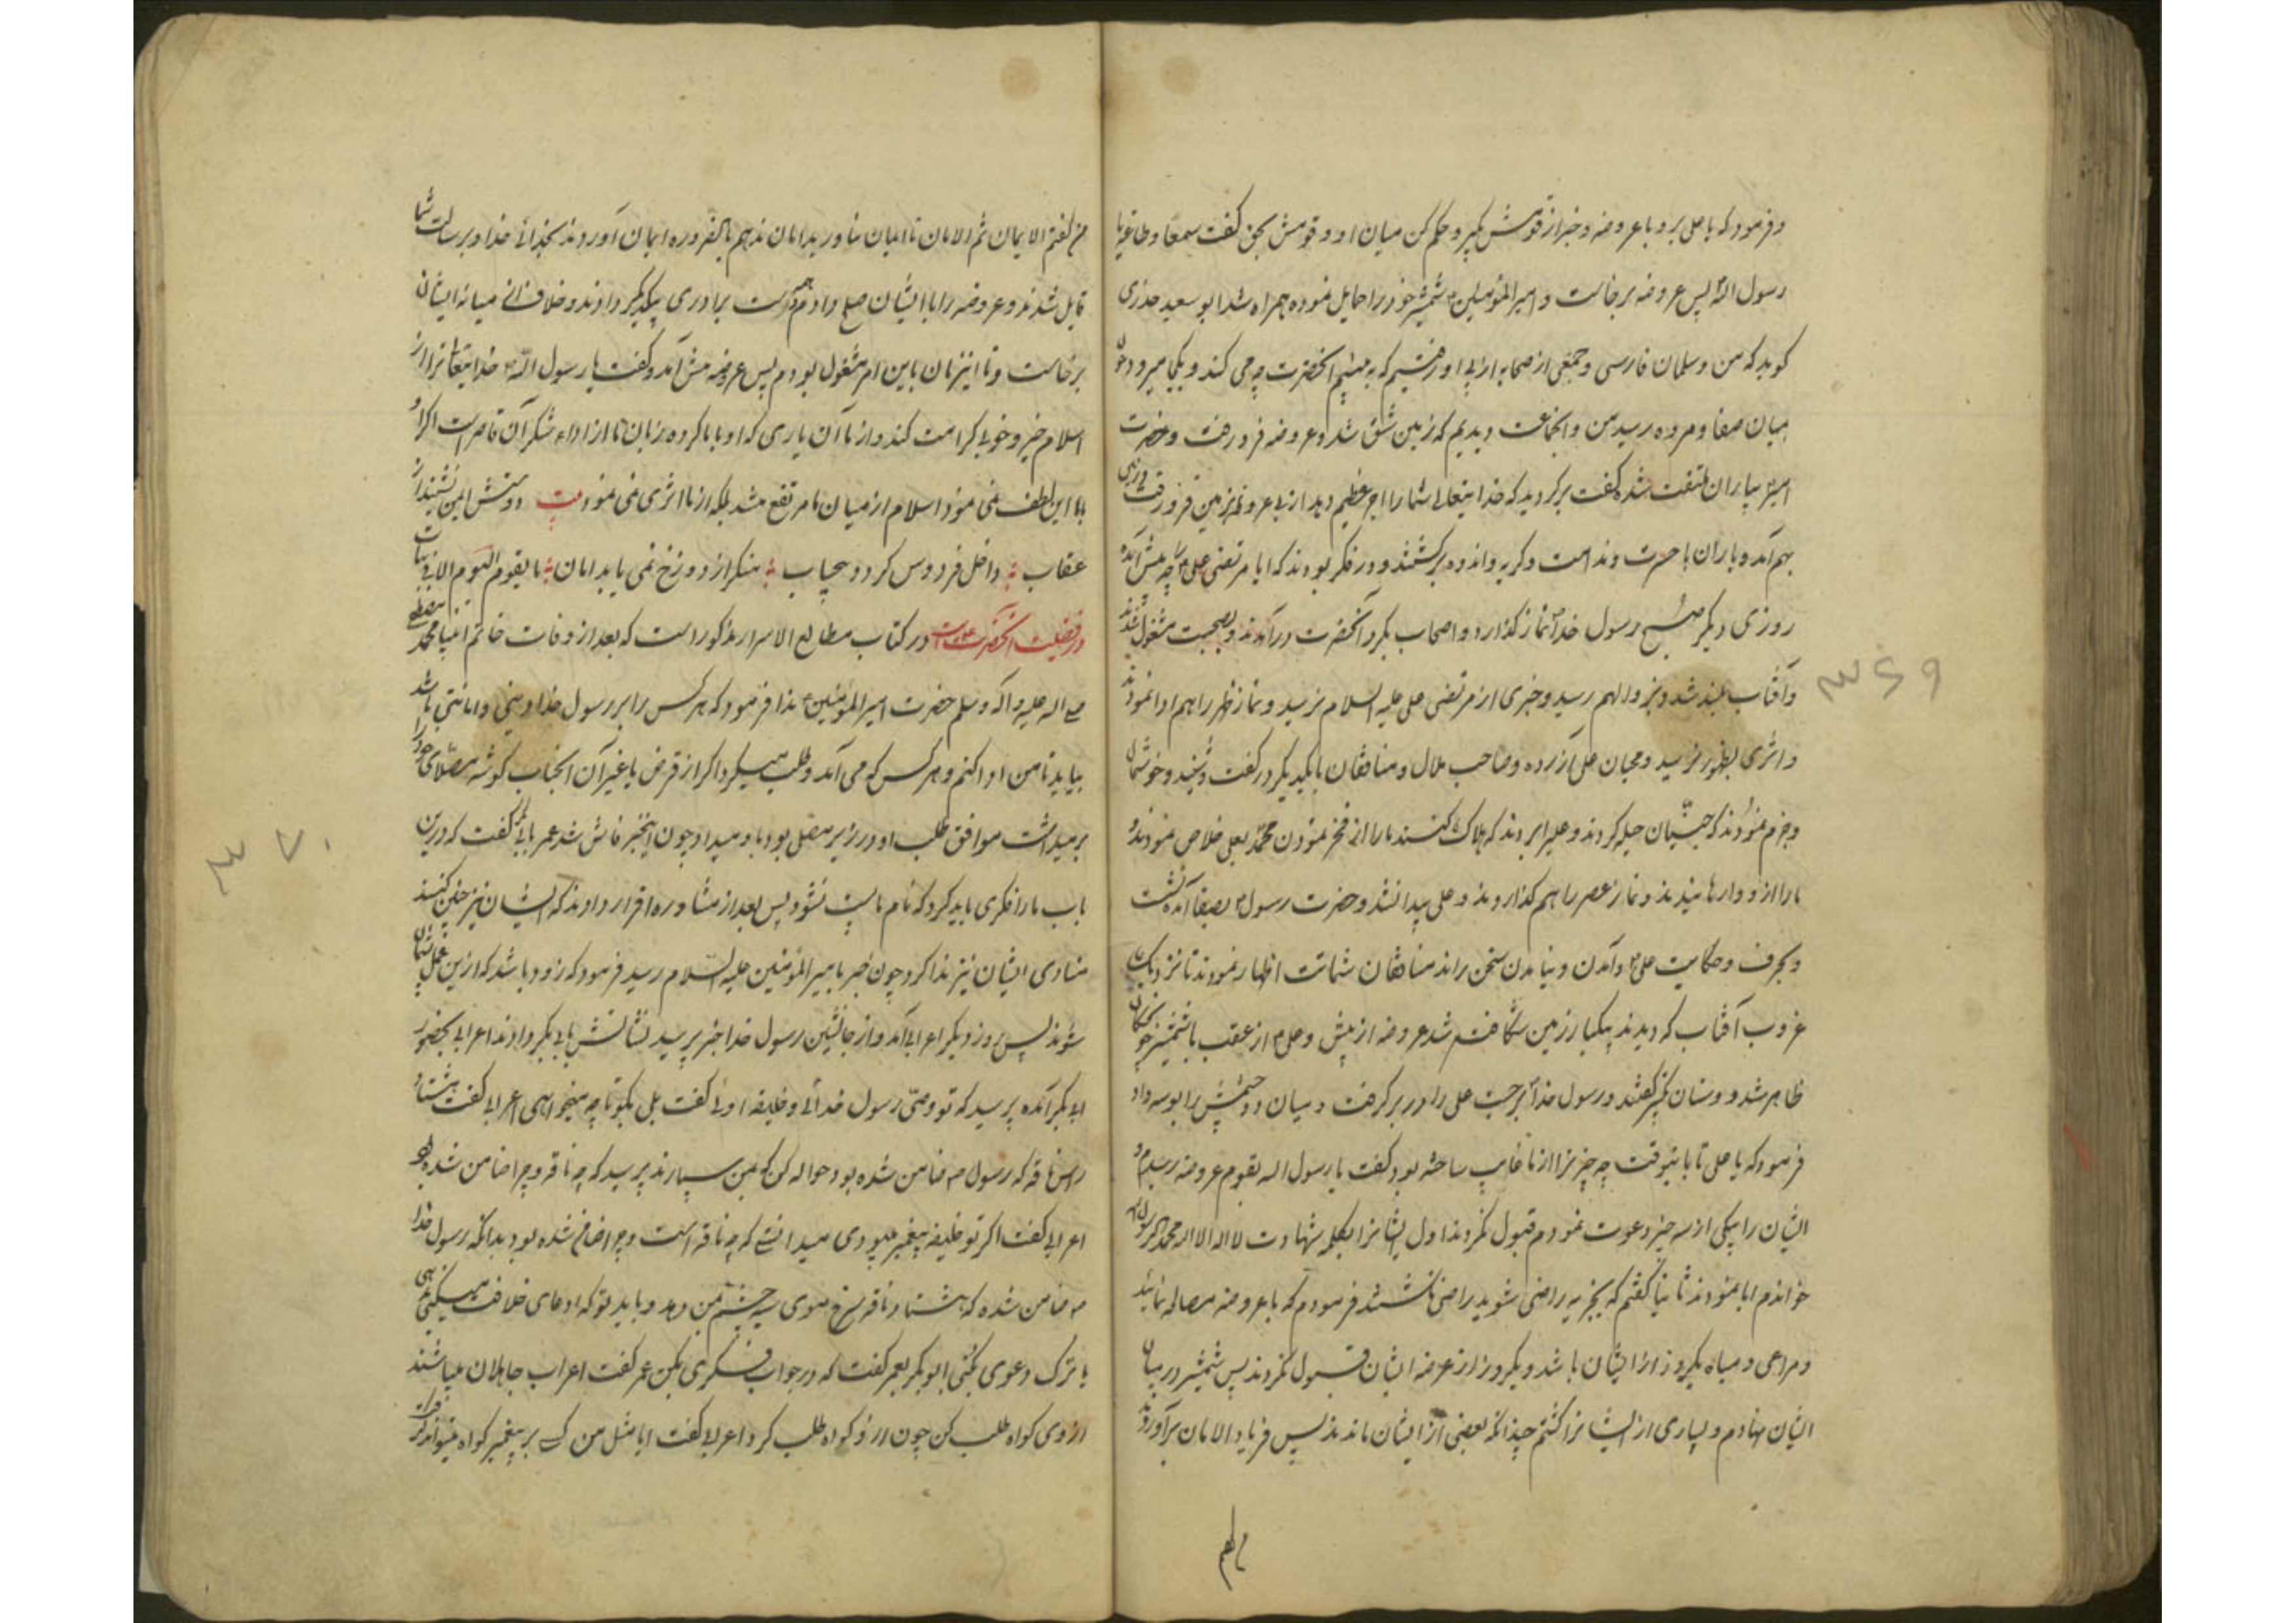 و فرمود که یا علی برو با عروضه و خبر از قومش بگیر و حکم کن میان او و قومش بحق گفت سمعا و طاعة یا
رسول الله پس عروضه برخاست و امیر المؤمنین شمشیر خود را حمایل نموده همراه شد ابو سعید خدری
گوید که من و سلمان فارسی و جمعی از صحابه از پی او رفتیم که به بینیم آنحضرت چه می کند و بکجا میرود چون
میان صفا و مروه رسید من و آنجماعت دیدیم که زمین شق شد و عروضه فرو رفت و حضرت
امیر بیاران ملتفت شده گفت برگردید که خدایتعالی شما را اجر عظیم دهد از پی عروضه بزمین فرو رفت و زمین
بهم آمد و یاران با حسرت و ندامت و گریه و اندوه برگشتند و در فکر بودند که آیا مرتضی علی را چه پیش آمده
روزی دیگر صبح رسول خدا نماز گذارد و اصحاب بگرد آنحضرت درآمدند و بصحبت مشغول شدند
و آفتاب بلند شد و بزوال هم رسید و خبری از مرتضی علی علیه السلام نرسید و نماز ظهر را هم ادا نمودند
و اثری بظهور نرسید و محبان علی آزرده و صاحب ملال و منافقان با یکدیگر در گفت و شنید و خوشحال
و جزم نمودند که جنیان حیله کردند و علی را بردند که هلاک کنند ما را از فخر نمودن محمد بعلی خلاص نمودند و
ما را از و وارهانیدند و نماز عصر را هم گذاردند و علی پیدا نشد و حضرت رسول بصفا آمده نشست
و بحرف و حکایت علی و آمدن و نیامدن سخن راند منافقان شماتت اظهار نمودند تا نزدیک
غروب آفتاب که دیدند یکبار زمین شکافته شد عروضه از پیش و علی از عقب با شمشیر خون چکان
ظاهر شد دوستان تکبیر گفتند و رسول خدا برجست علی را در بر گرفت و میان دو چشمش را بوسه داد
فرمود که یا علی تا باینوقت چه چیز ترا از ما غایب ساخته بود گفت یا رسول الله بقوم عروضه رسیدم و
ایشان را بیکی از سه چیز دعوت نمودم قبول نکردند اول ایشانرا بکلمه شهادت لا اله الا الله محمد رسول الله
خواندم ابا نمودند ثانیا گفتم که بجزیه راضی شوید راضی نگشتند فرمودم که با عروضه مصالحه نمائید
و مراعی و میاه یکروز از ایشان باشد و یکروز از عرفه ایشان قبول نکردند پس شمشیر در میان
ایشان نهادم و بسیاری از ایشانرا کشتم چندانکه بعضی از ایشان ماندند پس فریاد الامان برآوردند
من گفتم الایمان ثم الامان تا ایمان نیاورید امان ندهم بالضروره ایمان آوردند بخدائی خدا و برسالت شما
قایل شدند و عروضه را با ایشان صلح دادم دست برادری بیکدیگر دادند و خلاف از میانه ایشان
برخاست و تا اینزمان باین امر مشغول بودم پس عروضه پیش آمد و گفت یا رسول الله خدایتعالی ترا از
اسلام خیر و خوبی کرامت کند و از ما آن یاری که او با ما کرده زبان ما از اداء شکر آن قاصر است اگر او
با ما این لطف نمی نمود اسلام از میان ما مرتفع میشد بلکه از ما اثری نمی نمود بیت دوستش ایمن نشیند از
عقاب داخل فردوس گردد بی حساب منکر از دوزخ نمی یابد امان ما یقوم الیوم الا فی
در فضیلت آنحضرت است در کتاب مطالع الاسرار مذکور است که بعد از وفات خاتم انبیا محمد مصطفی
صلی الله علیه و آله و سلم حضرت امیر المؤمنین ندا فرمود که هر کس را بر رسول خدا دینی و امانتی باشد
بیاید تا من ادا کنم و هر کس که می آمد و طلب میکرد اگر از قرض یا غیر آن آنجناب گوشه مصلای خود را
برمیداشت موافق طلب او در زیر مصلی بود باو میداد چون اینخبر فاش شد عمر بابی بکر گفت که درین
باب ما را فکری باید کرد که نام ما پست نشود پس بعد از مشاوره اقرار دادند که ایشان نیز چنین کنند
منادی ایشان نیز ندا کرد چون خبر بامیر المؤمنین علیه السلام رسید فرمود که زود باشد که ازین عمل پشیمان
شوند پس روز دیگر اعرابی آمد و از جانشین رسول خدا خبر پرسید نشانش بابی بکر دادند اعرابی بحضور
ابی بکر آمده پرسید که تو وصی رسول خدائی و خلیفه اوئی گفت بلی بگو تا چه میخواهی اعرابی گفت هشتاد
راس ناقه که رسول ضامن شده بود حواله کن که بمن سپارند پرسید که چه ناقه و چرا ضامن شده بود
اعرابی گفت اگر تو خلیفه پیغمبر میبودی میدانستی که چه ناقه است و چرا ضامن شده بود بدانکه رسول خدا
ضامن شده که هشتاد ناقه سرخ موی سیه چشم بمن دهد و باید تو که ادعای خلافت میکنی بدهی
یا ترک دعوی بکنی ابو بکر بعمر گفت که در جواب فکری بکن عمر گفت اعراب جاهلان میباشند
از وی گواه طلب کن چون ازو گواه طلب کرد اعرابی گفت آیا مثل من کسی بر پیغمبر گواه میتواند گرفت
من گفتم
۳۶۹
۳۷۰